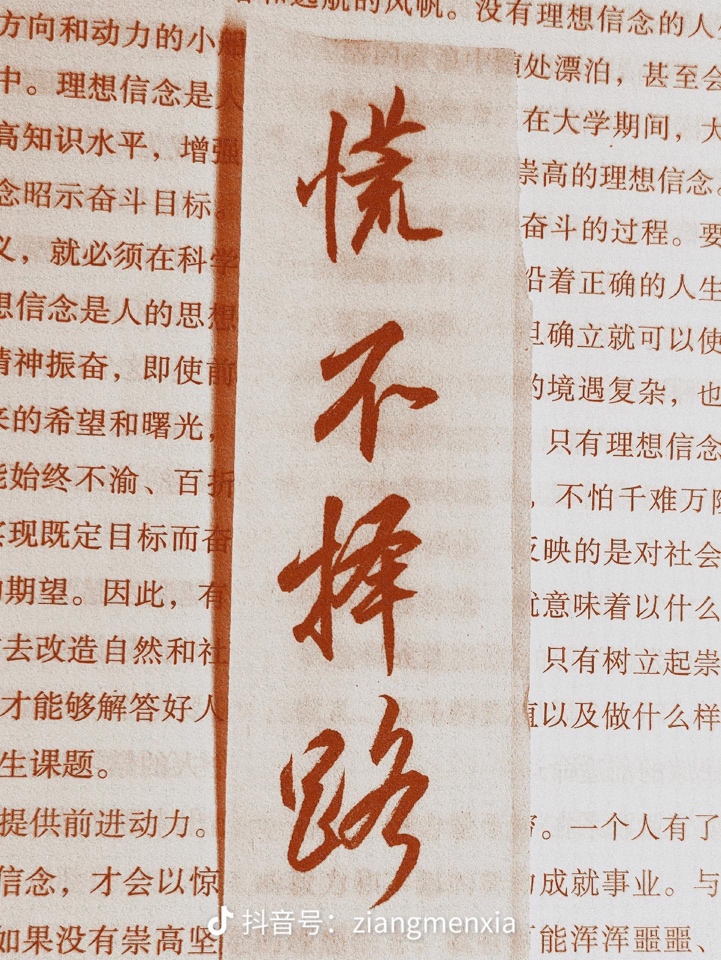 慌不择路
和远航的风帆。没有理想信念的人
方向和动力的小
随处漂泊，甚至会
中。理想信念是人
在大学期间，大
高知识水平，增强
崇高的理想信念
念昭示奋斗目标。
奋斗的过程。要
义，就必须在科学
沿着正确的人生
想信念是人的思想
旦确立就可以使
精神振奋，即使前
的境遇复杂，也
来的希望和曙光，
只有理想信念
能始终不渝、百折
，不怕千难万险
实现既定目标而奋
反映的是对社会
的期望。因此，有
就意味着以什么
去改造自然和社
只有树立起崇
才能够解答好人
值以及做什么样
生课题。
提供前进动力。
。一个人有了
信念，才会以惊
成就事业。与
如果没有崇高坚
能浑浑噩噩、
抖音号：ziangmenxia